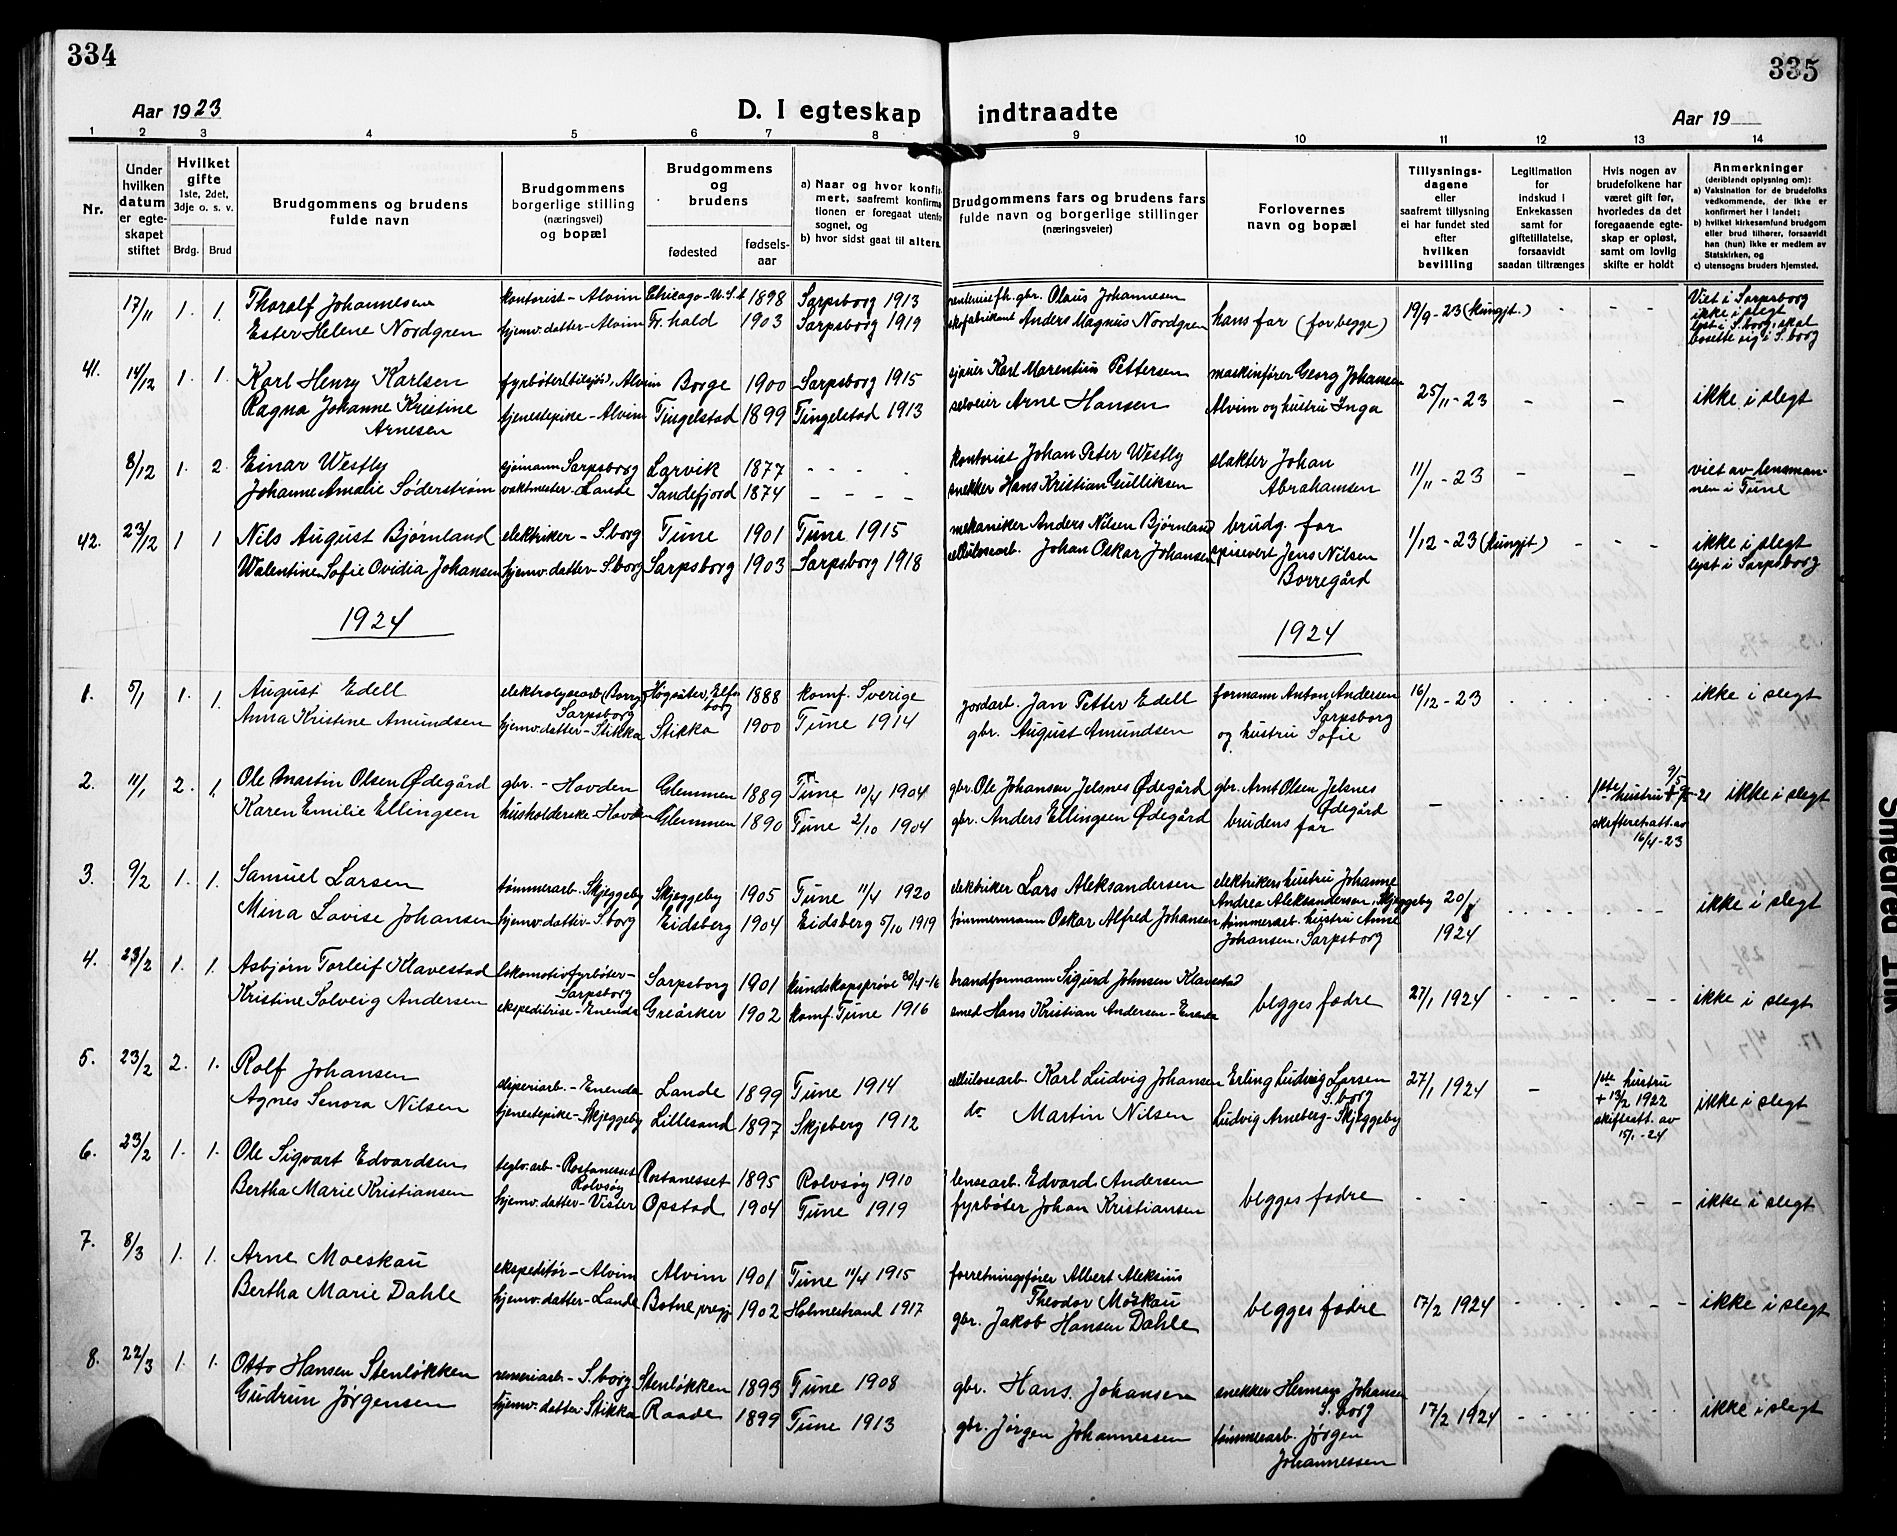 334
335
Aar 1923
D. I egteskap indtraadte
Aar 19
1 2 3 4 5 6 7 8 9 10 11 12 13 14
Nr.
Under hvilken datum er egteskapet stiftet
Hvilket gifte 1ste, 2det, 3dje o. s. v.
Brdg. Brud
Brudgommens og brudens fulde navn
Brudgommens borgerlige stilling (næringsvei) og bopæl
Brudgommens og brudens
fødested
fødselsaar
a) Naar og hvor konfirmert, saafremt konfirmationen er foregaat utenfor sognet, og
b) hvor sidst gaat til alters.
Brudgommens fars og brudens fars fulde navn og borgerlige stillinger (næringsveier)
Forlovernes navn og bopæl
Tillysningsdagene eller saafremt tillysning ei har fundet sted efter hvilken bevilling
Legitimation for Indskud i Enkekassen samt for giftetillatelse, forsaavidt saadan tiltrænges
Hvis nogen av brudefolkene har været gift før, hvorledes da det foregaaende egteskap er opløst, samt om lovlig skifte er holdt
Anmerkninger (deriblandt oplysning om):
a) Vaksination for de brudefolks vedkommende, der ikke er konfirmert her i landet;
b) hvilket kirkesamfund brudgom eller brud tilhører, forsaavidt han (hun) ikke er medlem av Statskirken, og
c) utensogns bruders hjemsted.
17/11 1. 1. Thoralf Johannesen kontorist - Alvim Chicago - U.S.A 1898 Sarpsborg 1913 fh. gbr. Olaus Johannesen hans far (for begge) 19/9-23 (kungjt.) Viet i Sarpsborg
Ester Helene Nordgren hjemv. datter - Alvim Fr.hald 1903 Sarpsborg 1919 skofabrikant Anders Magnus Nordgren ikke i slegt
lyst i S.borg, skal
bosette sig i S.borg
41. 14/12 1. 1. Karl Henry Karlsen fyrbøter, Alvim Borge 1900 Sarpsborg 1915 sjauer Karl Marentius Pettersen maskinfører Georg Johansen 25/11-23 - - ikke i slegt
Ragna Johanne Kristine tjenestepike - Alvim Tingelstad 1899 Tingelstad 1913 selveier Arne Hansen Alvim og hustru Inga
Arnesen
8/12 1. 2. Einar Westly sjømann Sarpsborg Larvik 1877 - - - - kontorist Johan Peter Westly slakter Johan 11/11-23 - - viet av lensman-
Johanne Amalie Söderstrøm vaktmester - Lande Sandefjord 1874 - - - - snekker Hans Kristian Gulliksen Abrahamsen nen i Tune
42. 23/12 1 1 Nils August Bjørnland elektriker - S.borg Tune 1901 Tune 1915 mekaniker Anders Nilsen Bjørnland brudg. far 1/12-23 (kungjt.) - - - ikke i slegt
Walentine Sofie Ovidia Johansen hjemv. datter - S.borg Sarpsborg 1903 Sarpsborg 1918 cellulosearb. Johan Oskar Johansen spisevert Jens Nilsen lyst i Sarpsborg
Borregård
1924
1924
1. 5/1 1. 1. August Edell elektrolysearb. (Borrg. Högsäter, Elfs- 1888 konf. Sverige jordart. Jan Petter Edell formann Anton Andersen 16/12-23 ikke i slegt
Sarpsborg borg Sarpsborg
Anna Kristine Amundsen hjemv. datter - Stikka Stikka 1900 Tune 1914 gbr. August Amundsen og hustru Sofie
2. 11/1 2. 1. Ole Martin Olsen Ødegård gbr. - Hovden Glemmen 1889 Tune 10/4 1904 gbr. Ole Johansen Jelsnes Ødegård gbr. Arnt Olsen Jelsnes - 1ste hustru + 9/5-21 ikke i slegt
Ødegård
Karen Emilie Ellingsen husholderske - Hovden Glemmen 1890 Tune 2/10 1904 gbr. Anders Ellingsen Ødegård brudens far skifteretsatt. av
16/4-23
3. 9/2 1. 1. Samuel Larsen tømmerarb. Skjeggeby Skjeggeby 1905 Tune 11/4 1920 elektriker Lars Aleksandersen elektrikers hustru Johanne 20/1 ikke i slegt
Andrea Aleksandersen, Skjeggeby
Mina Lovise Johansen hjemv. datter - S.borg Eidsberg 1904 Eidsberg 5/10 1919 tømmermann Oskar Alfred Johansen tømmerarb. hustru Anne 1924
Johansen, Sarpsborg
4. 23/2 1. 1. Asbjørn Torleif Klavestad lokomotivfyrbøter - Sarpsborg 1901 kundskapsprøve 30/4-16 brandformann Sigurd Johnsen Klavestad begges fædre 27/1 1924 - - - ikke i slegt
Sarpsborg
Kristine Solveig Andersen ekspeditrise - Enenda Greåker 1902 konf. Tune 1916 smed Hans Kristian Andersen - Enenda
5. 23/2 2. 1. Rolf Johansen sliperiarb. - Enenda Lande 1899 Tune 1914 cellulosearb. Karl Ludvig Johansen Erling Ludvig Larsen 27/1 1924 - 1ste hustru ikke i slegt
S.borg + 13/2 1922
Agnes Senora Nilsen tjenestepike - Skjeggeby Lillesand 1897 Skjeberg 1912 do Martin Nilsen Ludvig Arneberg - Skjeggeby skifteatt. av
15/1-24
6. 23/2 1. 1. Ole Sigvart Edvardsen teglv.arb - Rostanesset Rostanesset 1895 Rolvsøy 1910 lensearb. Edvard Andersen begges fædre - - - ikke i slegt
Rolvsøy
Bertha Marie Kristiansen hjemv. datter - Vister Opstad 1904 Tune 1919 fyrbøter Johan Kristiansen
7. 8/3 1. 1. Arne Moeskau ekspeditør - Alvim Alvim 1901 Tune 11/4 1915 forretningsfører Albert Aleksius begges fædre 17/2 1924 - - - ikke i slegt
Theodor Moskau
Bertha Marie Dahle hjemv. datter - Lande Botne pregj. 1902 Holmestrand 1917 gbr. Jakob Hansen Dahle
8. 22/3 1. 1. Otto Hansen Stenløkken renseriarb - S.borg Stenløkken 1893 Tune 1908 gbr. Hans Johansen snekker Herman Johansen 17/2 1924 - - - ikke i slegt
S.borg
Gudrun Jørgensen hjemv. datter Stikka Raade 1899 Tune 1913 gbr. Jørgen Johannessen tømmerarb. Jørgen
Johannessen